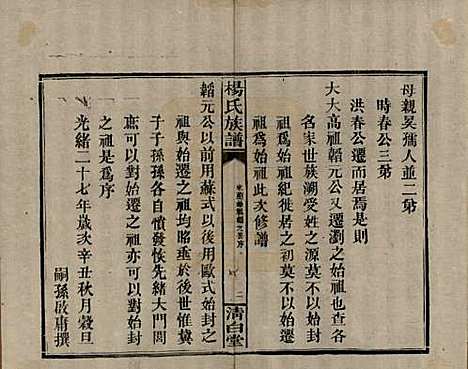 母親吳孺人並二弟
時春公三弟
洪春公遷而居焉是則
大大高祖韜元公又遷瀏之始祖也查各
名家世族溯受姓之源莫不以始封之
祖爲始祖紀徙居之初莫不以始遷之
祖爲始祖此次修譜
楊氏族譜
二
清白堂
韜元公以前用蘇式以後用歐式始封之
祖與始遷之祖均略垂於後世惟冀
子子孫孫各自憤發恢先緒大門閭
庶可以對始遷之祖亦可以對始封
之祖是爲序
光緒二十七年歲次辛丑秋月穀旦
嗣孫啟庸撰